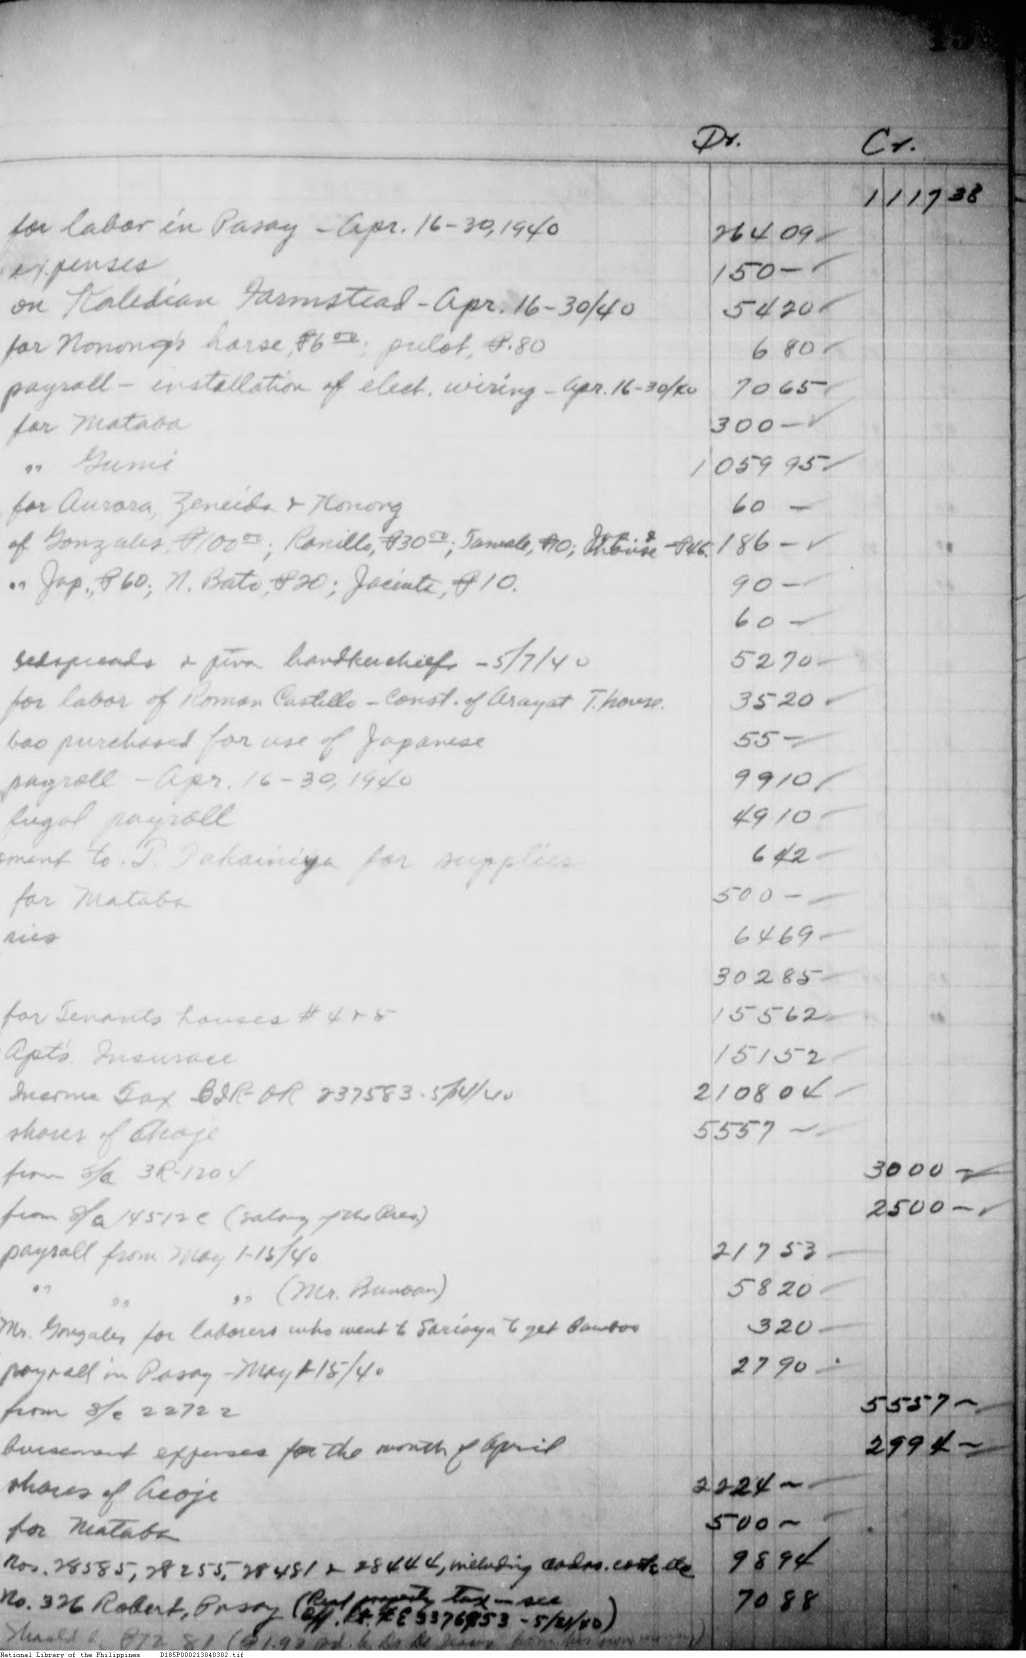 Dr. Cr.
111738
for labor in Pasay - Apr. 16-30, 1940 26409
expenses 150-
on Kaledian Farmstead - Apr. 16-30/40 5420
for Nonong's horse, ₱6.00; pulot, ₱.80 680
payroll - installation of elect. wiring - Apr. 16-30/40 7065
for Mataba 300-
" Gumi 105995
for Aurora, Zeneida & Nonong 60-
of Gonzales, ₱100.00; Ranillo, ₱30.00; ₱10; ₱46. 186-
" Jap., ₱60; N. Bato, ₱20; Jacinto, ₱10. 90-
60-
bedspreads & piña handkerchiefs - 5/7/40 5270
for labor of Roman Castillo - Const. of Arayat T. house. 3520
boo purchased for use of Japanese 55-
payroll - Apr. 16-30, 1940 9910
lugal payroll 4910
ment to T. for supplies 642
for Mataba 500-
ries 6469
30285
for Tenants houses #4 & 5 15562
Apt's Insurace 15152
Income Tax BIR-OR 237583 - 5/14/40 210804
shares of Acoje 5557-
from S/a 3R-1204 3000-
from S/a 14512C 2500-
payroll from May 1-15/40 21753
" " " (Mr. Bunoan) 5820
Mr. Gonzales for laborers who went to Sariaya to get Bamboo 320
payroll in Pasay - May 1-15/40 2790
from S/c 22722 5557-
bursement expenses for the month of April 2994-
shares of Acoje 2224-
for Mataba 500-
Nos. 28585, 28255, 28481 & 28444, including 9894
No. 326 Robert, Pasay (Real property tax - see 7088
Off. Rt. - 5/21/40)
National Library of the Philippines D185P000213040302.tif